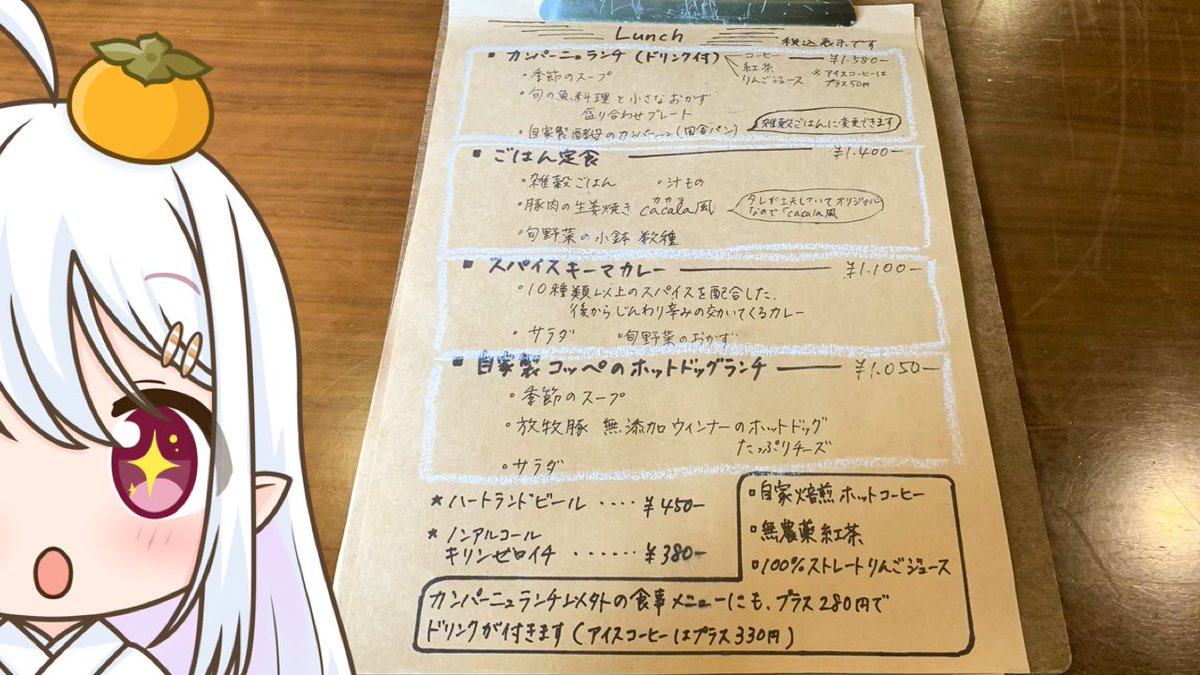 Lunch
税込表示です
・カンパーニュランチ(ドリンク付)
コーヒー
紅茶
りんごジュース
¥1.580-
※アイスコーヒーは
プラス50円
・季節のスープ
・旬の魚料理と小さなおかず
盛り合わせプレート
・自家製酵母のカンパーニュ(田舎パン)
雑穀ごはんに変更できます
・ごはん定食 ¥1.400-
・雑穀ごはん ・汁もの
・豚肉の生姜焼き cacala風
カカラ
タレが工夫していてオリジナル
なので「cacala風
・旬野菜の小鉢 数種
・スパイスキーマカレー ¥1.100-
・10種類以上のスパイスを配合した、
後からじんわり辛みの効いてくるカレー
・サラダ ・旬野菜のおかず
・自家製コッペのホットドッグランチ ¥1.050-
・季節のスープ
・放牧豚 無添加ウィンナーのホットドッグ
たっぷりチーズ
・サラダ
*ハートランドビール ・・・・ ¥450-
*ノンアルコール
キリンゼロイチ ・・・・・・ ¥380-
・自家焙煎ホットコーヒー
・無農薬紅茶
・100%ストレートりんごジュース
カンパーニュランチ以外の食事メニューにも、プラス280円で
ドリンクが付きます(アイスコーヒーはプラス330円)